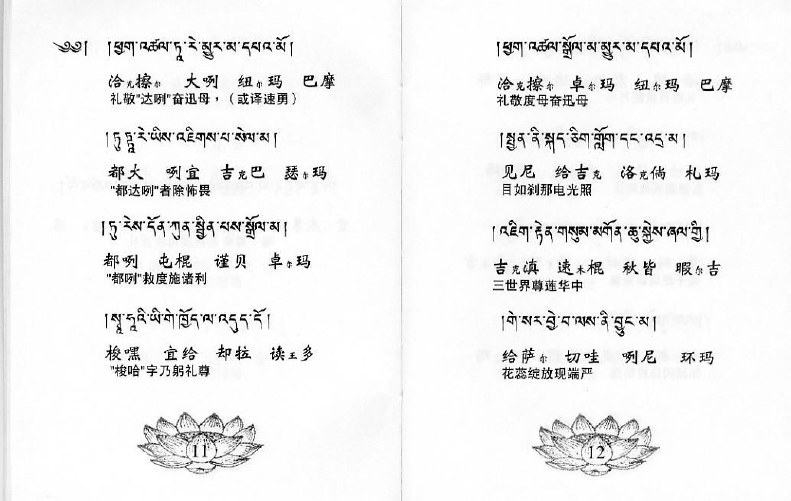 ༄༅། །ཕྱག་འཚལ་ཏཱ་རེ་མྱུར་མ་དཔའ་མོ།
洽克擦尔 大咧 纽尔玛 巴摩
礼敬"达咧"奋迅母，（或译速勇）
།ཏུཏྟཱ་རེ་ཡིས་འཇིགས་པ་སེལ་མ།
都大 咧宜 吉克巴 瑟尔玛
"都达咧"者除怖畏
།ཏུ་རེས་དོན་ཀུན་སྦྱིན་པས་སྒྲོལ་མ།
都咧 屯棍 谨贝 卓尔玛
"都咧"救度施诸利
།སྭཱ་ཧཱའི་ཡི་གེ་ཁྱོད་ལ་འདུད་དོ།
梭嘿 宜给 却拉 读王多
"梭哈"字乃躬礼尊
11
།ཕྱག་འཚལ་སྒྲོལ་མ་མྱུར་མ་དཔའ་མོ།
洽克擦尔 卓尔玛 纽尔玛 巴摩
礼敬度母奋迅母
།སྤྱན་ནི་སྐད་ཅིག་གློག་དང་འདྲ་མ།
见尼 给吉克 洛克倘 札玛
目如刹那电光照
།འཇིག་རྟེན་གསུམ་མགོན་ཆུ་སྐྱེས་ཞལ་གྱི།
吉克滇 速木棍 秋皆 暇尔吉
三世界尊莲华中
།གེ་སར་བྱེ་བ་ལས་ནི་བྱུང་མ།
给萨尔 切哇 咧尼 环玛
花蕊绽放现端严
12